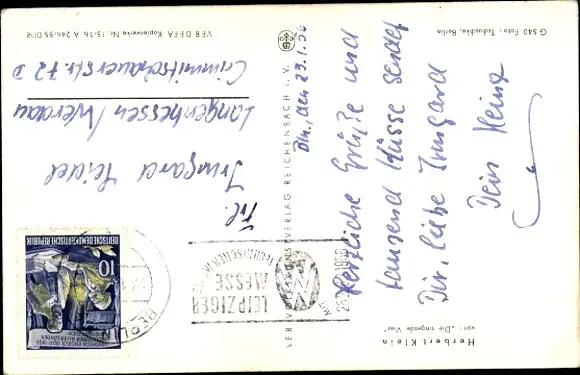 Herbert Klein
von: „Die singende Vier"
Bln., den 23.1.56
Herzliche Grüße und
tausend Küsse sendet
Dir, liebe Irmgard
Dein Heinz
G 540 Foto: Tschuschke, Berlin
VEB VOLKSKUNSTVERLAG REICHENBACH i. V.
LEIPZIGER
MESSE
TECHNISCHER
MIT
BERLIN
DEUTSCHE DEMOKRATISCHE REPUBLIK
10
FRIEDRICH ENGELS 1820-1895
Frl.
Irmgard
Langenhessen/Werdau
Crimmitschauerstr. 72 D
VEB DEFA Kopierwerke Nr. 15-16 A 246/55 DDR